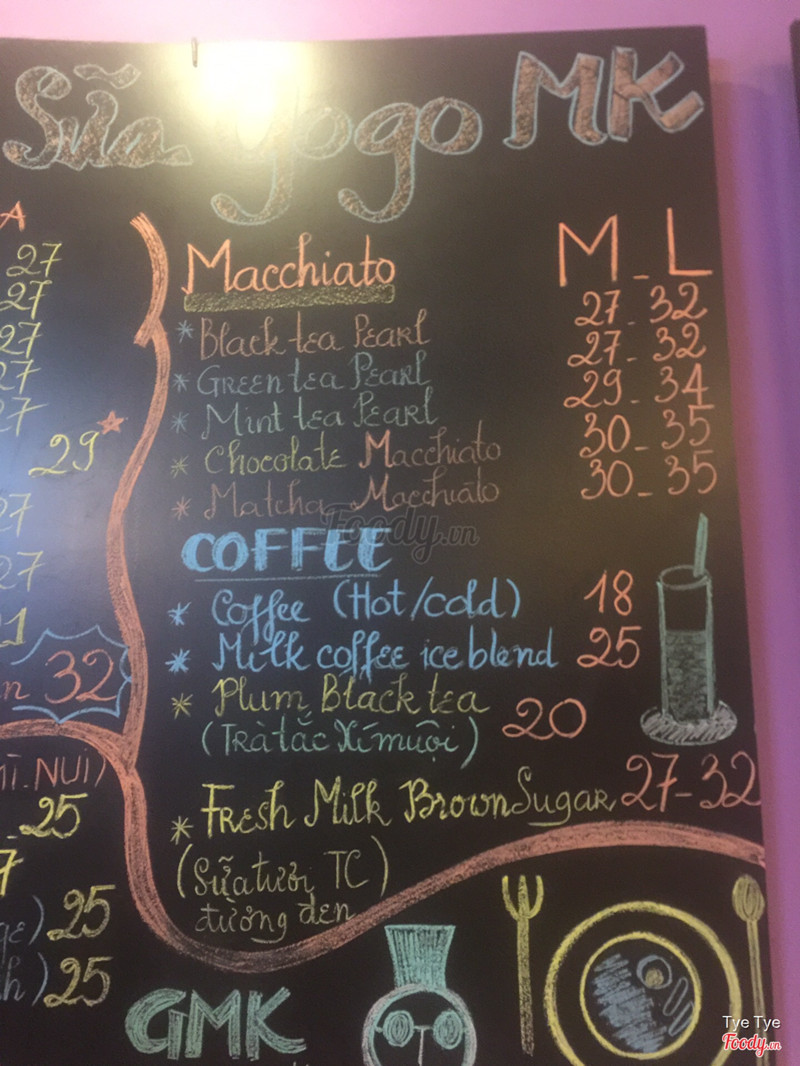 Sữa Yogo MK
A
27
27
27
27
27
29
27
27
32
MÌ.NUI)
25
25
25
Macchiato M - L
* Black tea Pearl 27 - 32
* Green tea Pearl 27 - 32
* Mint tea Pearl 29 - 34
* Chocolate Macchiato 30 - 35
* Matcha Macchiato 30 - 35
COFFEE
* Coffee (Hot/cold) 18
* Milk coffee ice blend 25
* Plum Black tea
(Trà tắc Xí muội) 20
* Fresh Milk Brown Sugar 27-32
(Sữa tươi TC)
đường đen
GMK
Foody.vn
Tye Tye
Foody.vn